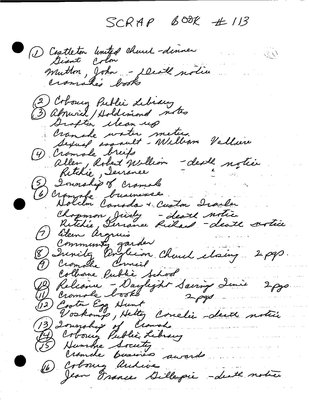 SCRAP BOOK #113
① Castleton United Church - dinner
Giant Colon
Mutton, John - Death notice
Cramahe's books
② Cobourg Public Library
③ Alnwick/Haldimand notes
Grafton clean up
Cramahe water meters
Sexual assault - William
④ Cramahe briefs
Allen, Robert William - death notice
Ritchie, Terrance
⑤ Township of Cramahe
⑥ Cramahe businesses
Holcim Canada & Custom Trailer
Chapman, - death notice
Ritchie, Terrance Richard - death notice
⑦
Community garden
⑧ Trinity Anglican Church closing 2 pgs.
⑨ Cramahe Council
Colborne Public School
⑩ Reliance - Daylight Saving Time 2 pgs
⑪ Cramahe books 2 pgs
⑫ Easter Egg Hunt
Voskamp, Hetty Cornelia - death notice
⑬ Township of Cramahe
⑭ Cobourg Public Library
⑮ Humane Society
Cramahe business awards
⑯ Cobourg Archives
Jean Frances Gillespie - death notice